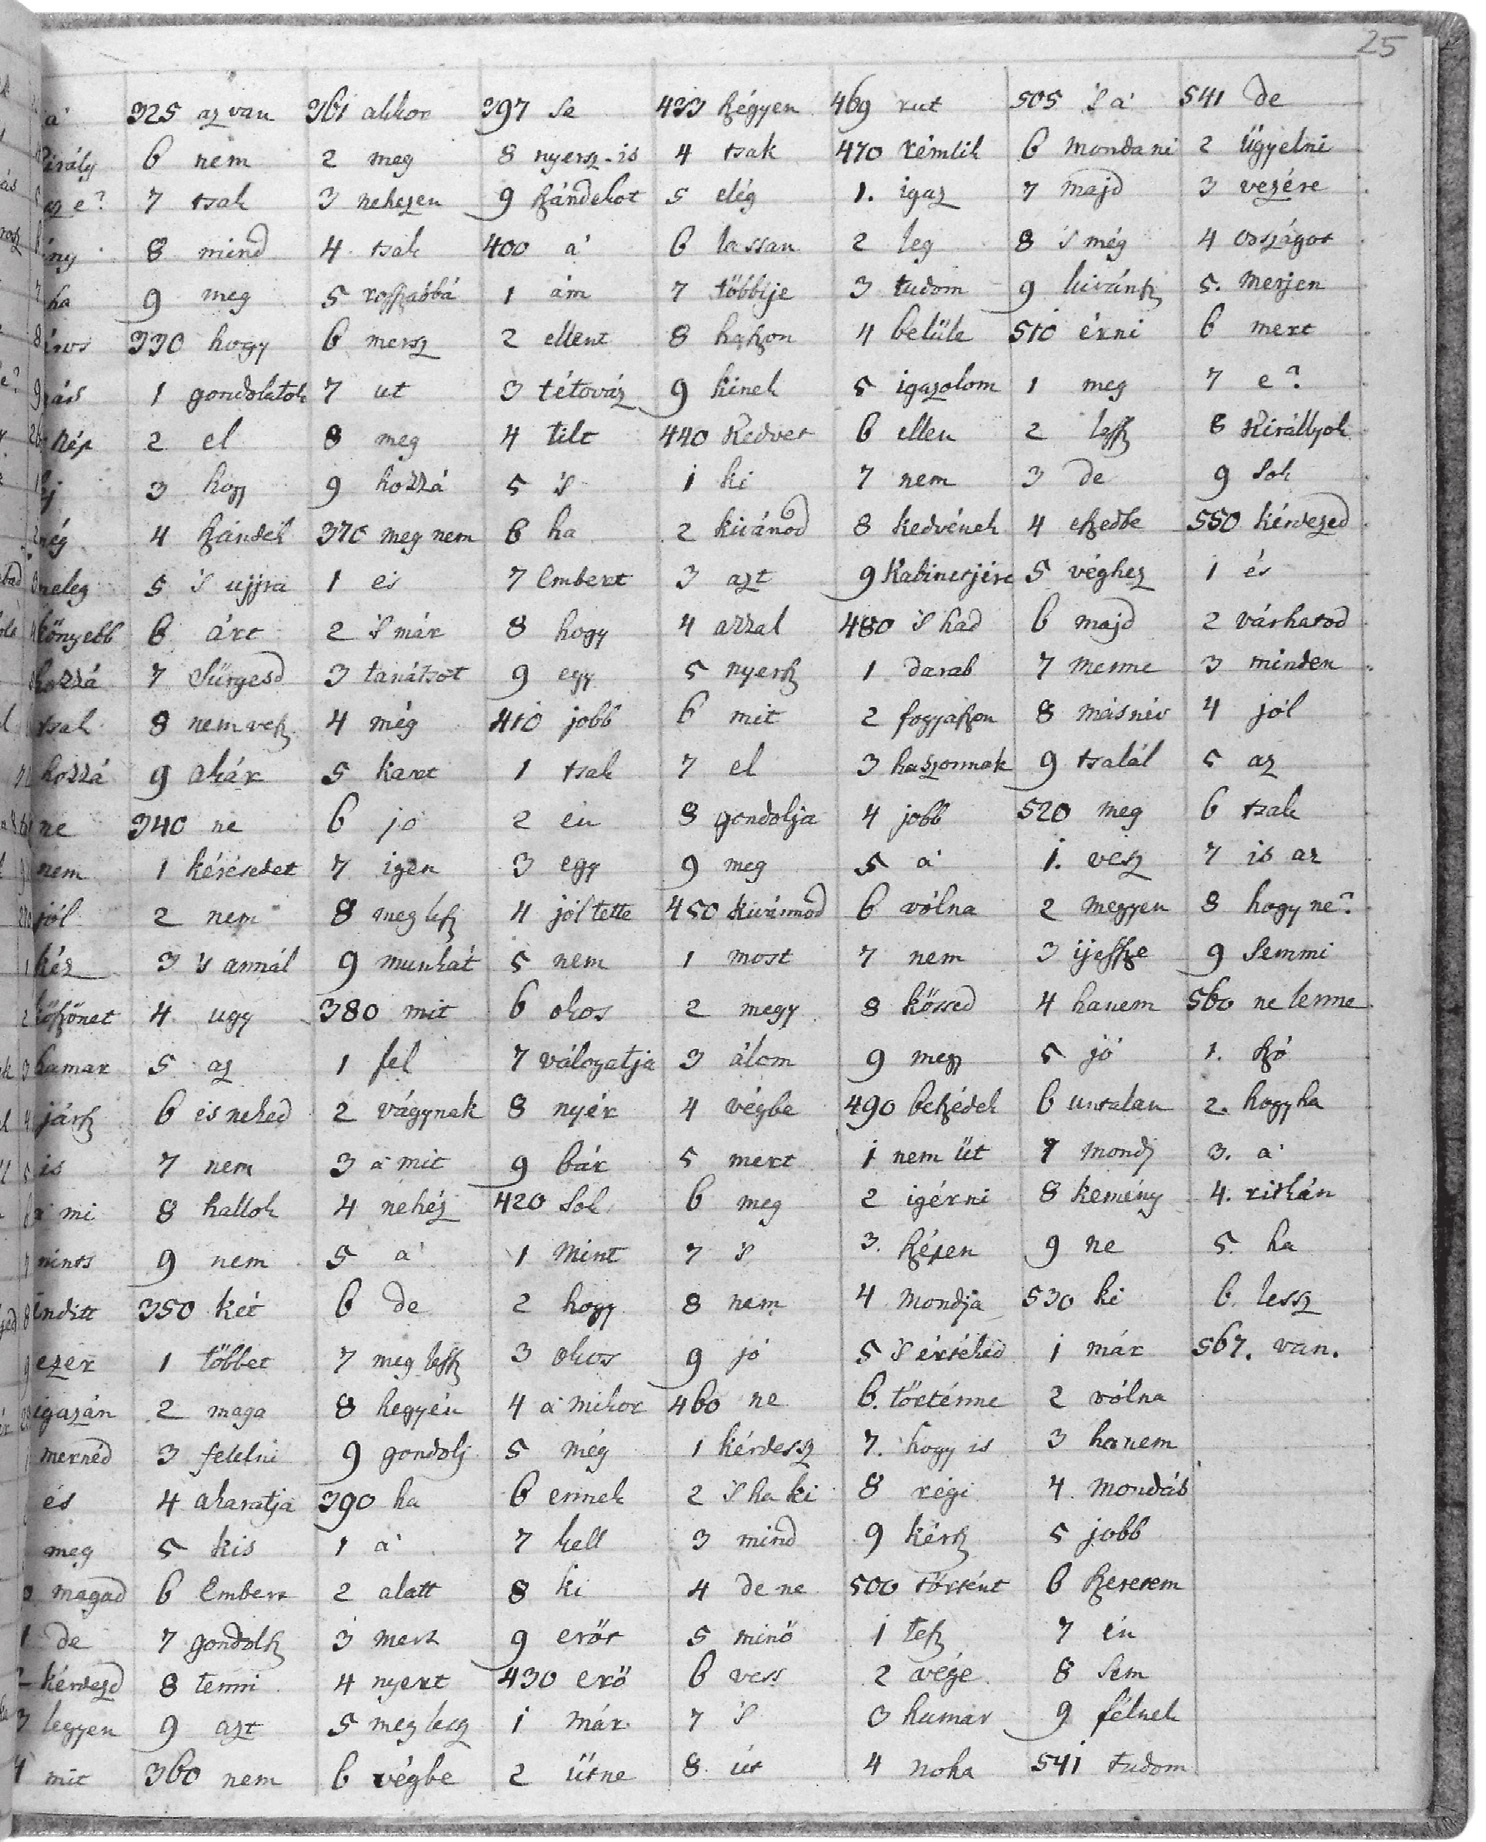 25
a' 325 az van 361 akkor 397 se 433 légyen 469 rut 505 's a' 541 de
király 6 nem 2 meg 8 nyersz-is 4 tsak 470 rémlik 6 mondani 2 ügyelni
az e? 7 tsak 3 nehezen 9 szándékot 5 elég 1. igaz 7 majd 3 vezére
ány 8 mind 4 tsak 400 a' 6 lassan 2 leg 8 's még 4 országos
ha 9 meg 5 rosszabbá 1 ám 7 többje 3 tudom 9 kivánsz 5. merjen
áros 330 hogy 6 mersz 2 ellent 8 haszon 4 belüle 510 érni 6 mert
rás 1 gondolatok 7 ut 3 tétováz 9 kinek 5 igazolom 1 meg 7 e?
szép 2 el 8 meg 4 tilt 440 kedves 6 ellen 2 lessz 8 királlyok
3 hogy 9 hozzá 5 's 1 ki 7 nem 3 de 9 sok
még 4 szándék 370 meg nem 6 ha 2 kivánod 8 kedvének 4 eszedbe 550 kérdezed
meleg 5 's ujjra 1 es 7 embert 3 azt 9 kabinetjére 5 véghez 1 és
könyebb 6 árt 2 's már 8 hogy 4 azzal 480 's had 6 majd 2 várhatod
hozzá 7 sürgesd 3 tanátsot 9 egy 5 nyersz 1 darab 7 menne 3 minden
tsak 8 nem vesz 4 még 410 jobb 6 mit 2 fogyaszon 8 másnév 4 jól
hozzá 9 akár 5 kart 1 tsak 7 el 3 haszonnak 9 tsalál 5 az
ne 340 ne 6 jo 2 én 8 gondolja 4 jobb 520 meg 6 tsak
nem 1 kérésedet 7 igen 3 egy 9 meg 5 a' 1. vesz 7 is az
jól 2 nem 8 meg lesz 4 jól tette 450 kivánnod 6 vólna 2 megyen 8 hogy ne?
kéz 3 's annál 9 munkát 5 nem 1 most 7 nem 3 ijessze 9 semmi
köszönet 4 ugy 380 mit 6 okos 2 megy 8 kössed 4 hanem 560 ne lenne
hamar 5 az 1 fel 7 válogatja 3 álom 9 megy 5 jó 1. szó
jársz 6 és neked 2 vágynak 8 nyér 4 végbe 490 beszédek 6 untalan 2. hogy ha
is 7 nem 3 a' mit 9 bár 5 mert 1 nem üt 7 mondj 3. a'
mi 8 hallok 4 nehéz 420 sok 6 meg 2 igérni 8 kemény 4. ritkán
nints 9 nem 5 a' 1 mint 7 's 3. szépen 9 ne 5. ha
indítt 350 két 6 de 2 hogy 8 nem 4 mondja 530 ki 6. lessz
ezer 1 többet 7 meg lessz 3 okos 9 jó 5 's értéked 1 már 567. van.
igazán 2 maga 8 hegyén 4 a' mikor 460 ne 6. történne 2 vólna
mernéd 3 felelni 9 gondolj 5 még 1 kérdessz 7. hogy is 3 hanem
és 4 akaratja 390 ha 6 ennek 2 's ha ki 8 régi 4. mondás
meg 5 kis 1 a' 7 kell 3 mind 9 kérsz 5 jobb
magad 6 ember 2 alatt 8 ki 4 de ne 500 történt 6 szeretem
de 7 gondolsz 3 mersz 9 erőt 5 minő 1 tesz 7 én
kérdezd 8 tenni 4 nyert 430 erő 6 vess 2 vége 8 sem
3 legyen 9 azt 5 meg lesz 1 már 7 's 3 hamar 9 félnek
4 mit 360 nem 6 végbe 2 ütne 8 út 4 noha 541 tudom